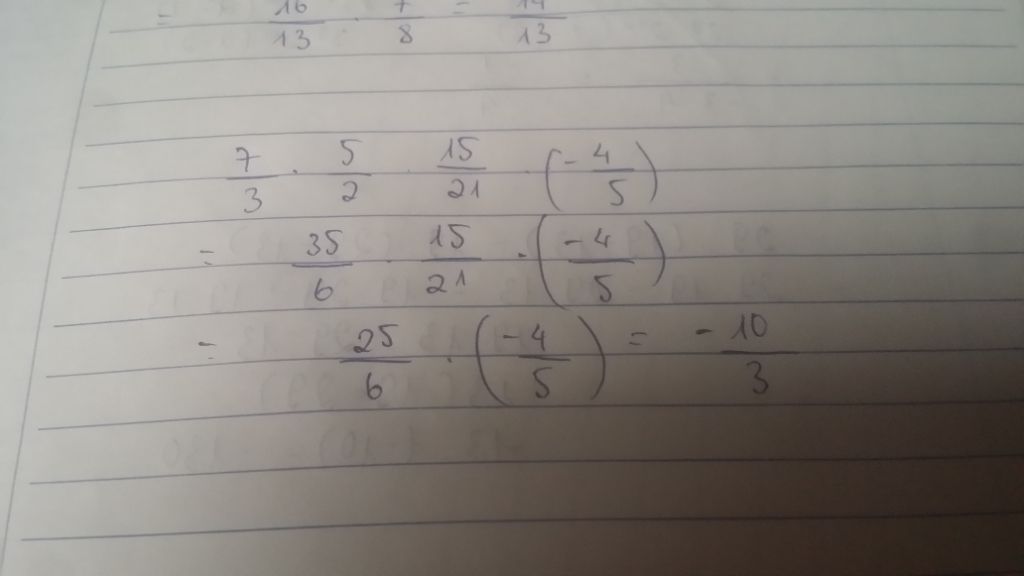 = 16/13 · 7/8 = 14/13
7/3 · 5/2 · 15/21 · (-4/5)
= 35/6 · 15/21 · (-4/5)
= 25/6 · (-4/5) = -10/3